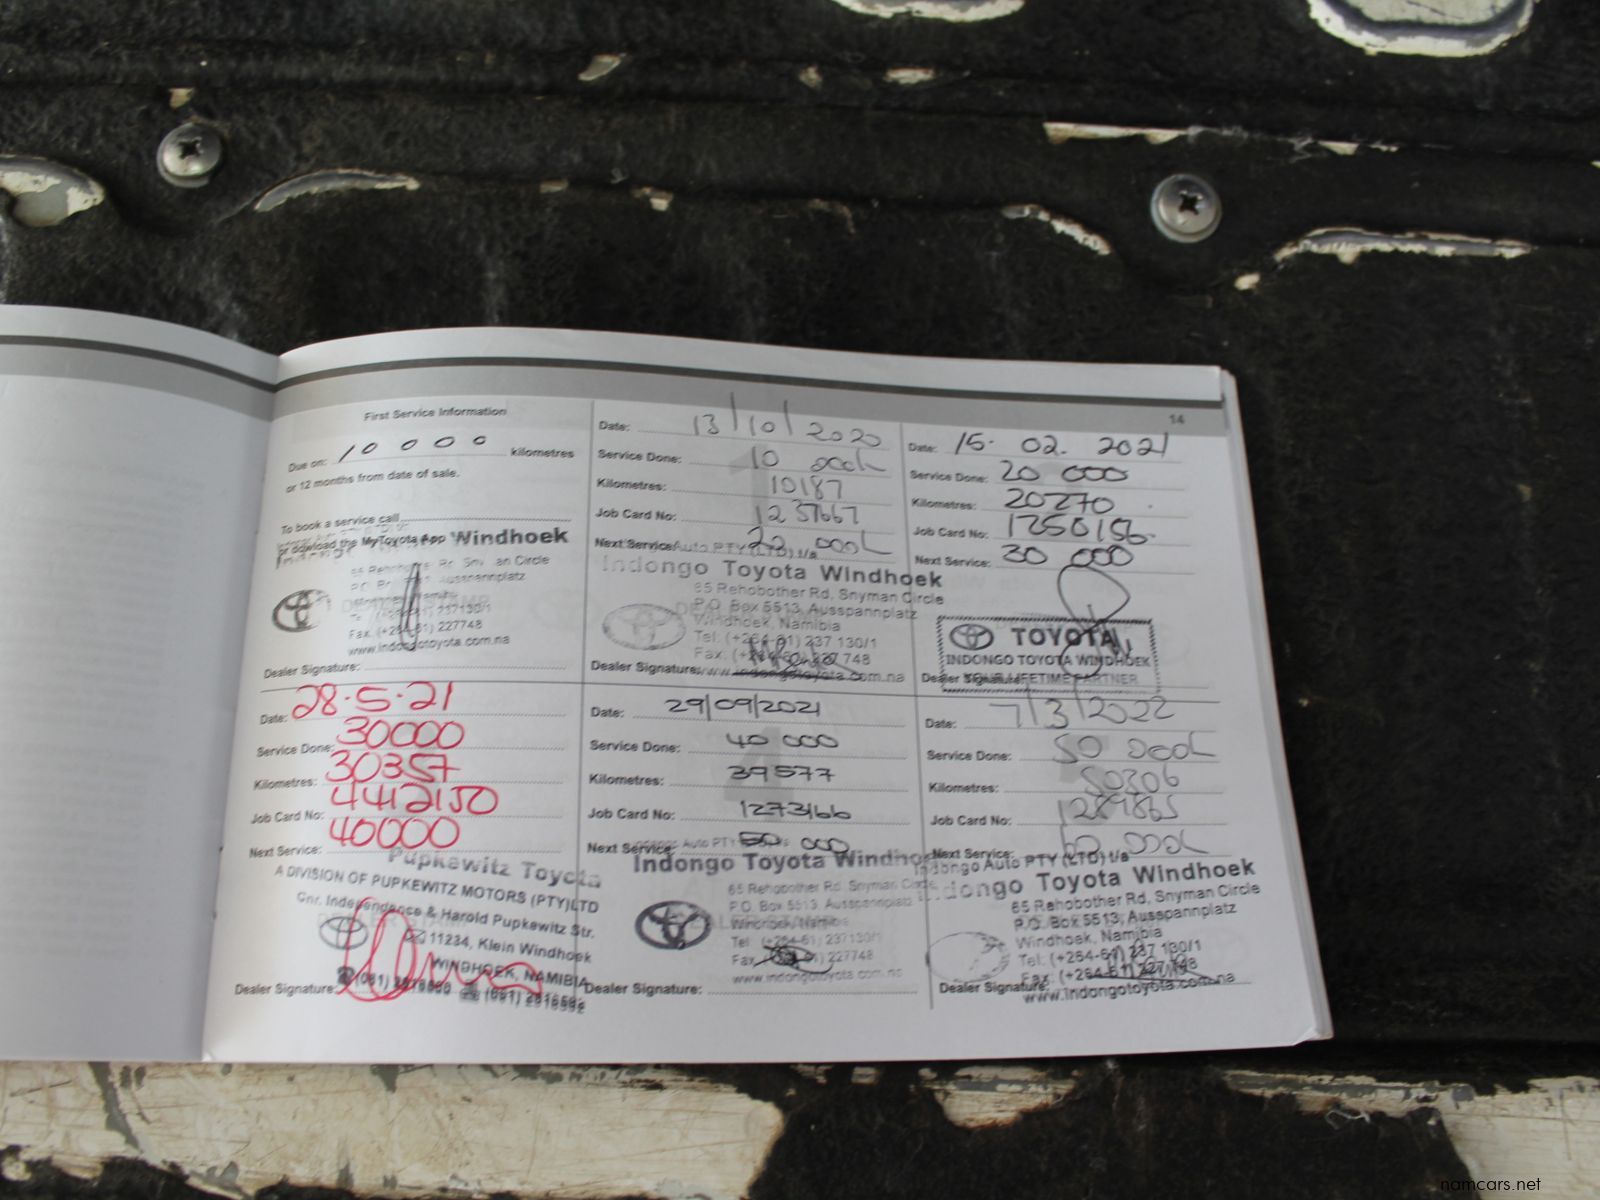 First Service Information
Due on: 10 000 kilometres
or 12 months from date of sale.
To book a service call
or dowload the MyToyota App
Windhoek
Ausspannplatz
Fax. (+264-61) 227748
www.indongotoyota.com.na
Dealer Signature:
Date: 13/10/2020
Service Done: 10 000k
Kilometres: 10187
Job Card No: 1237667
Next Service:
Auto PTY (LTD) t/a
Indongo Toyota Windhoek
65 Rehobother Rd, Snyman Circle
P.O. Box 5513, Ausspannplatz
Windhoek, Namibia
Tel: (+264-61) 237 130/1
Fax: (+264-61) 227 748
www.indongotoyota.com.na
Dealer Signature:
14
Date: 15. 02. 2021
Service Done: 20 000
Kilometres: 20270
Job Card No: 1250156
Next Service: 30 000
TOYOTA
INDONGO TOYOTA WINDHOEK
YOUR LIFETIME PARTNER
Dealer Signature:
Date: 28.5.21
Service Done: 30000
Kilometres: 30357
Job Card No: 4412150
Next Service: 40000
Pupkewitz Toyota
A DIVISION OF PUPKEWITZ MOTORS (PTY)LTD
Cnr. Independence & Harold Pupkewitz Str.
11234, Klein Windhoek
WINDHOEK, NAMIBIA
Dealer Signature:
Date: 29/09/2021
Service Done: 40 000
Kilometres: 39577
Job Card No: 1273166
Next Service: 50 000
Indongo Toyota Windhoek
65 Rehobother Rd, Snyman Circle
P.O. Box 5513, Ausspannplatz
Windhoek, Namibia
Tel (+264-61) 237130/1
Fax (+264-61) 227748
www.indongotoyota.com.na
Dealer Signature:
Date: 7/3/2022
Service Done: 50 000k
Kilometres: 50306
Job Card No: 1289865
Next Service: 60 000k
Indongo Auto PTY (LTD) t/a
Indongo Toyota Windhoek
65 Rehobother Rd, Snyman Circle
P.O. Box 5513, Ausspannplatz
Windhoek, Namibia
Tel: (+264-61) 237 130/1
Fax: (+264-61) 227 748
www.indongotoyota.com.na
Dealer Signature:
namcars.net